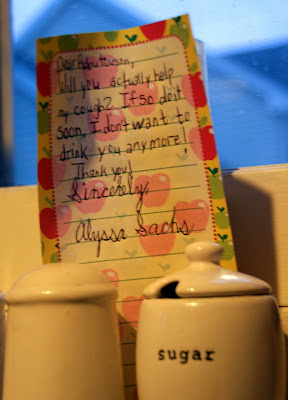 Dear Robitussin,
Will you actually help
my cough? If so do it
soon, I don't want to
drink you anymore!
Thank you!
Sincerely,
Alyssa Sachs
sugar